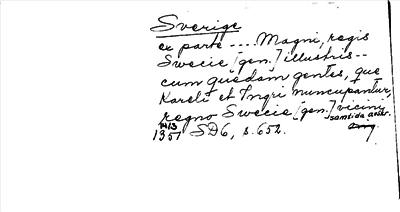 Sverige
ex parte .... Magni, regis
Swecie [gen.] illustris --
cum quedam gentes, que
Kareli et Ingri nuncupantur,
regno Swecie [gen.] vicini
samtida avskr.
14/3
1351 SD6, s. 652.